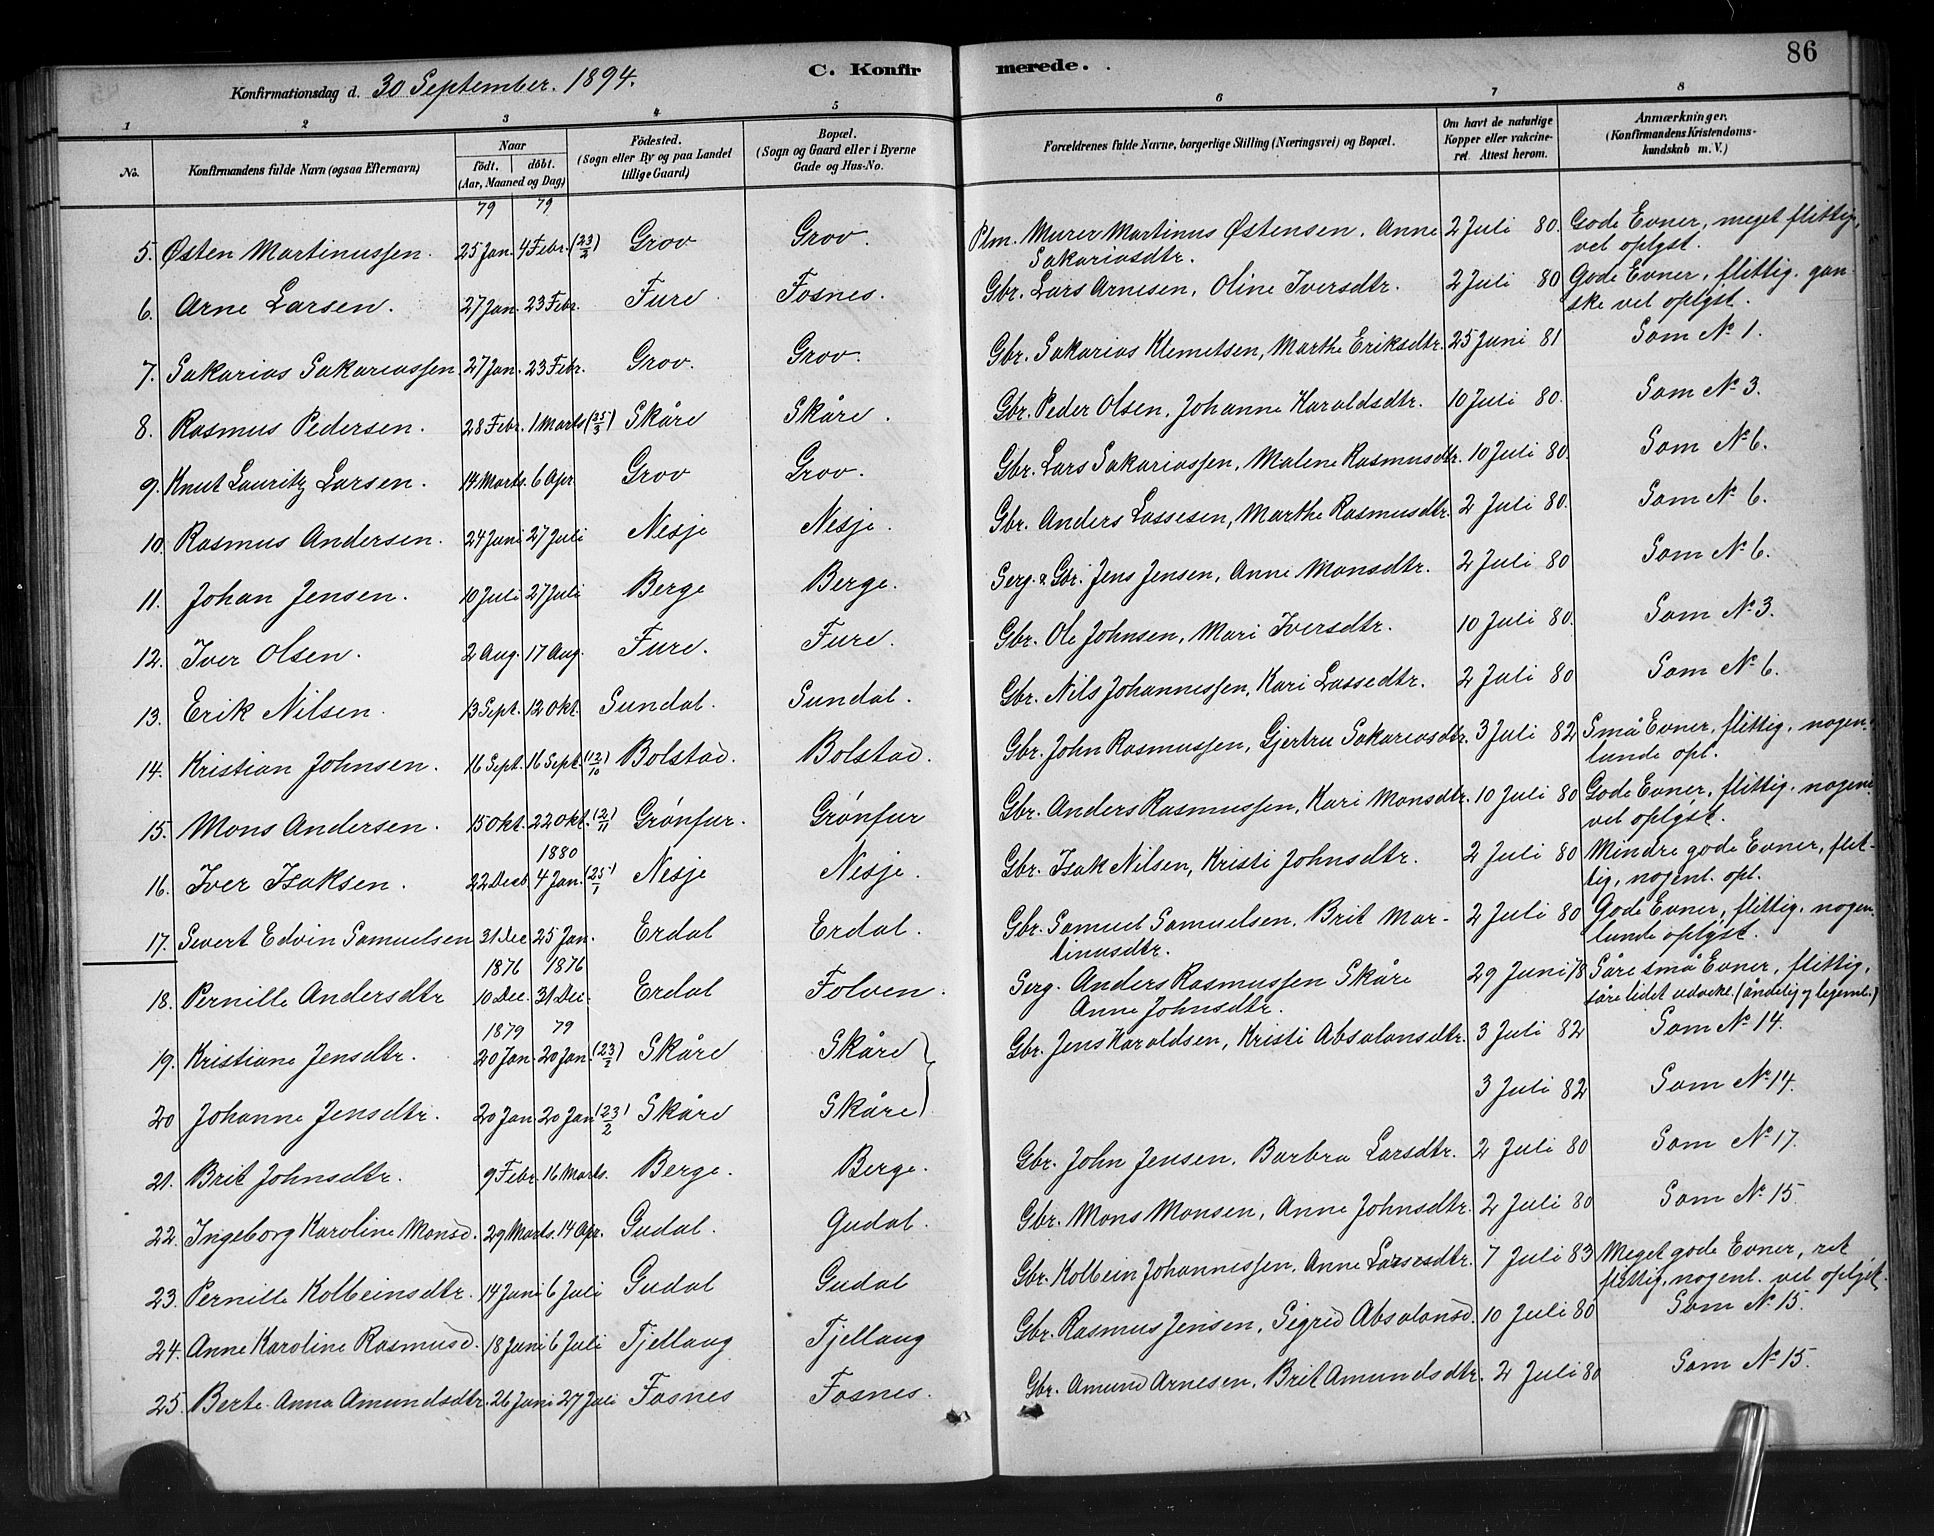 86
C. Konfirmerede.
Konfirmationsdag d. 30 September. 1894.
1 2 3 4 5 6 7 8
No. Konfirmandens fulde Navn (ogsaa Efternavn) Naar Födt. döbt. (Aar, Maaned og Dag) Födested. (Sogn eller By og paa Landet tillige Gaard) Bopæl. (Sogn og Gaard eller i Byerne Gade og Hus-No. Forældrenes fulde Navne, borgerlige Stilling (Næringsvei) og Bopæl. Om havt de naturlige Kopper eller vakcineret. Attest herom. Anmærkninger. (Konfirmandens Kristendomskundskab m. V.)
79 79
5. Østen Martinussen. 25 Jan. 4 Febr. (23/2) Grov Grov. Plm. Murer Martinus Østensen, Anne Sakariasdtr. 2 Juli 80. Gode Evner, meget flittig, vel oplyst.
6. Arne Larsen. 27 Jan. 23 Febr. Fure Fosnes. Gbr. Lars Arnesen, Oline Iversdtr. 2 Juli 80 Gode Evner, flittig, ganske vel oplyst.
7. Sakarias Sakariassen 27 Jan. 23 Febr. Grov. Grov. Gbr. Sakarias Klemetsen, Marthe Eriksdtr. 25 Juni 81 Som No 1.
8. Rasmus Pedersen. 28 Febr. 1 Marts (25/3) Skåre Skåre. Gbr. Peder Olsen, Johanne Haraldsdtr. 10 Juli 80. Som No 3.
9. Knut Lauritz Larsen. 14 Marts. 6 Apr Grov Grov. Gbr. Lars Sakariassen, Malene Rasmusdtr. 10 Juli 80. Som No 6.
10. Rasmus Andersen. 24 Juni 27 Juli Nesje Nesje. Gbr. Anders Lassesen, Marthe Rasmusdtr. 2 Juli 80. Som No 6.
11. Johan Jensen. 10 Juli 27 Juli Berge Berge. Serg. & Gbr. Jens Jensen, Anne Monsdtr. 2 Juli 80 Som No 6.
12. Iver Olsen. 2 Aug. 17 Aug. Fure. Fure. Gbr. Ole Johnsen, Mari Iversdtr. 10 Juli 80. Som No 3.
13. Erik Nilsen. 13 Sept. 12 Okt. Sundal. Sundal. Gbr. Nils Johannessen, Kari Lassedtr. 2 Juli 80 Som No 6.
14. Kristian Johnsen. 16 Sept. 16 Sept. (12/10) Bolstad. Bolstad. Gbr. John Rasmussen, Gjertru Sakariasdtr. 3 Juli 82 Små Evner, flittig, nogenlunde opl.
15. Mons Andersen. 15 Okt. 22 Okt. (2/11) Grønfur. Grønfur Gbr. Anders Rasmussen, Kari Monsdtr. 10 Juli 80 Gode Evner, flittig, nogenl. vel oplyst.
1880
16. Iver Isaksen. 22 Decb. 4 Jan. (25/1) Nesje Nesje. Gbr. Isak Nilsen, Kristi Johnsdtr. 2 Juli 80 Mindre gode Evner, flittig, nogenl. opl.
17. Sivert Edvin Samuelsen 31 Dec 25 Jan. Erdal Erdal. Gbr. Samuel Samuelsen, Brit Martinusdtr. 2 Juli 80 Gode Evner, flittig, nogenlunde oplyst.
1876 1876
18. Pernille Andersdtr 10 Dec. 31 Dec. Erdal Folven. Serg. Anders Rasmussen Skåre Anne Johnsdtr. 29 Juni 78 Såre små Evner, flittig, såre lidet udvikl. (åndelig og legeml.)
1879 79
19. Kristiane Jensdtr. 20 Jan. 20 Jan. (23/2) Skåre Skåre Gbr. Jens Haraldsen, Kristi Absalonsdtr. 3 Juli 82 Som No 14.
20 Johanne Jensdtr. 20 Jan 20 Jan (23/2) Skåre Skåre 3 Juli 82 Som No 14.
21. Brit Johnsdtr. 9 Febr. 16 Marts. Berge. Berge. Gbr. John Jensen, Barbra Larsdtr. 2 Juli 80 Som No 17.
22. Ingeborg Karoline Monsd. 29 Marts. 14 Apr. Gudal. Gudal. Gbr. Mons Monsen, Anne Johnsdtr. 2 Juli 80 Som No 15.
23. Pernille Kolbeinsdtr. 14 Juni 6 Juli Gudal Gudal Gbr. Kolbein Johannessen, Anne Larsesdtr. 7 Juli 83 Meget gode Evner, ret flittig, nogenl. vel oplyst.
24. Anne Karoline Rasmusd. 18 Juni 6 Juli Tjellaug Tjellaug Gbr. Rasmus Jensen, Sigrid Absalonsd. 10 Juli 80 Som No 15.
25. Berte Anna Amundsdtr. 26 Juni 27 Juli Fosnes Fosnes. Gbr. Amund Arnesen, Brit Amundsdtr. 2 Juli 80 Som No 15.